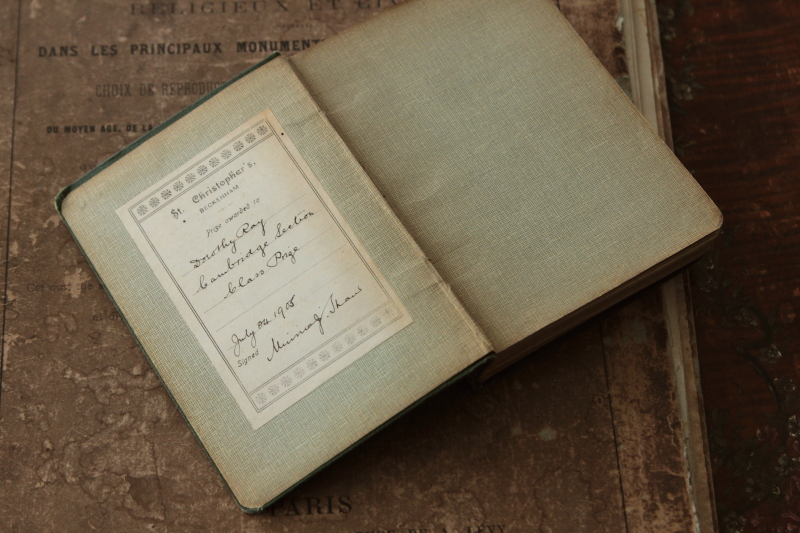 RELIGIEUX ET CIV
DANS LES PRINCIPAUX MONUMENT
CHOIX DE REPRODUC
DU MOYEN AGE, DE LA
St. Christopher's,
BECKENHAM
Prize awarded to
Dorothy Ray
Cambridge Section
Class Prize
July 1908
Signed Shaw
PARIS
LÉVY